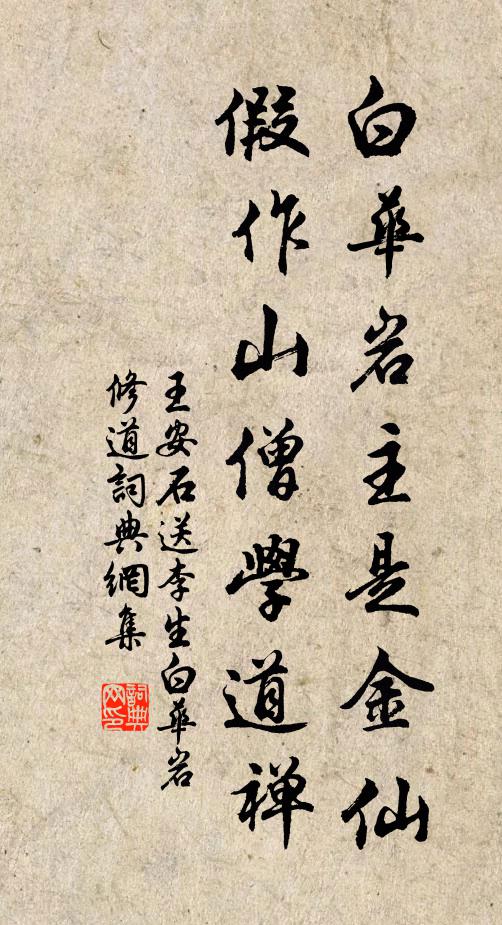 白華岩主是金仙
假作山僧學道禅
王安石送李生白華岩
修道詞典網集
詞典
网印